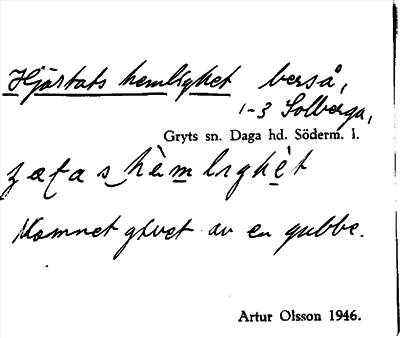 Hjärtats hemlighet berså,
1-3 Solberga,
Gryts sn. Daga hd. Söderm. l.
hèmlighèt
Namnet givet av en gubbe.
Artur Olsson 1946.